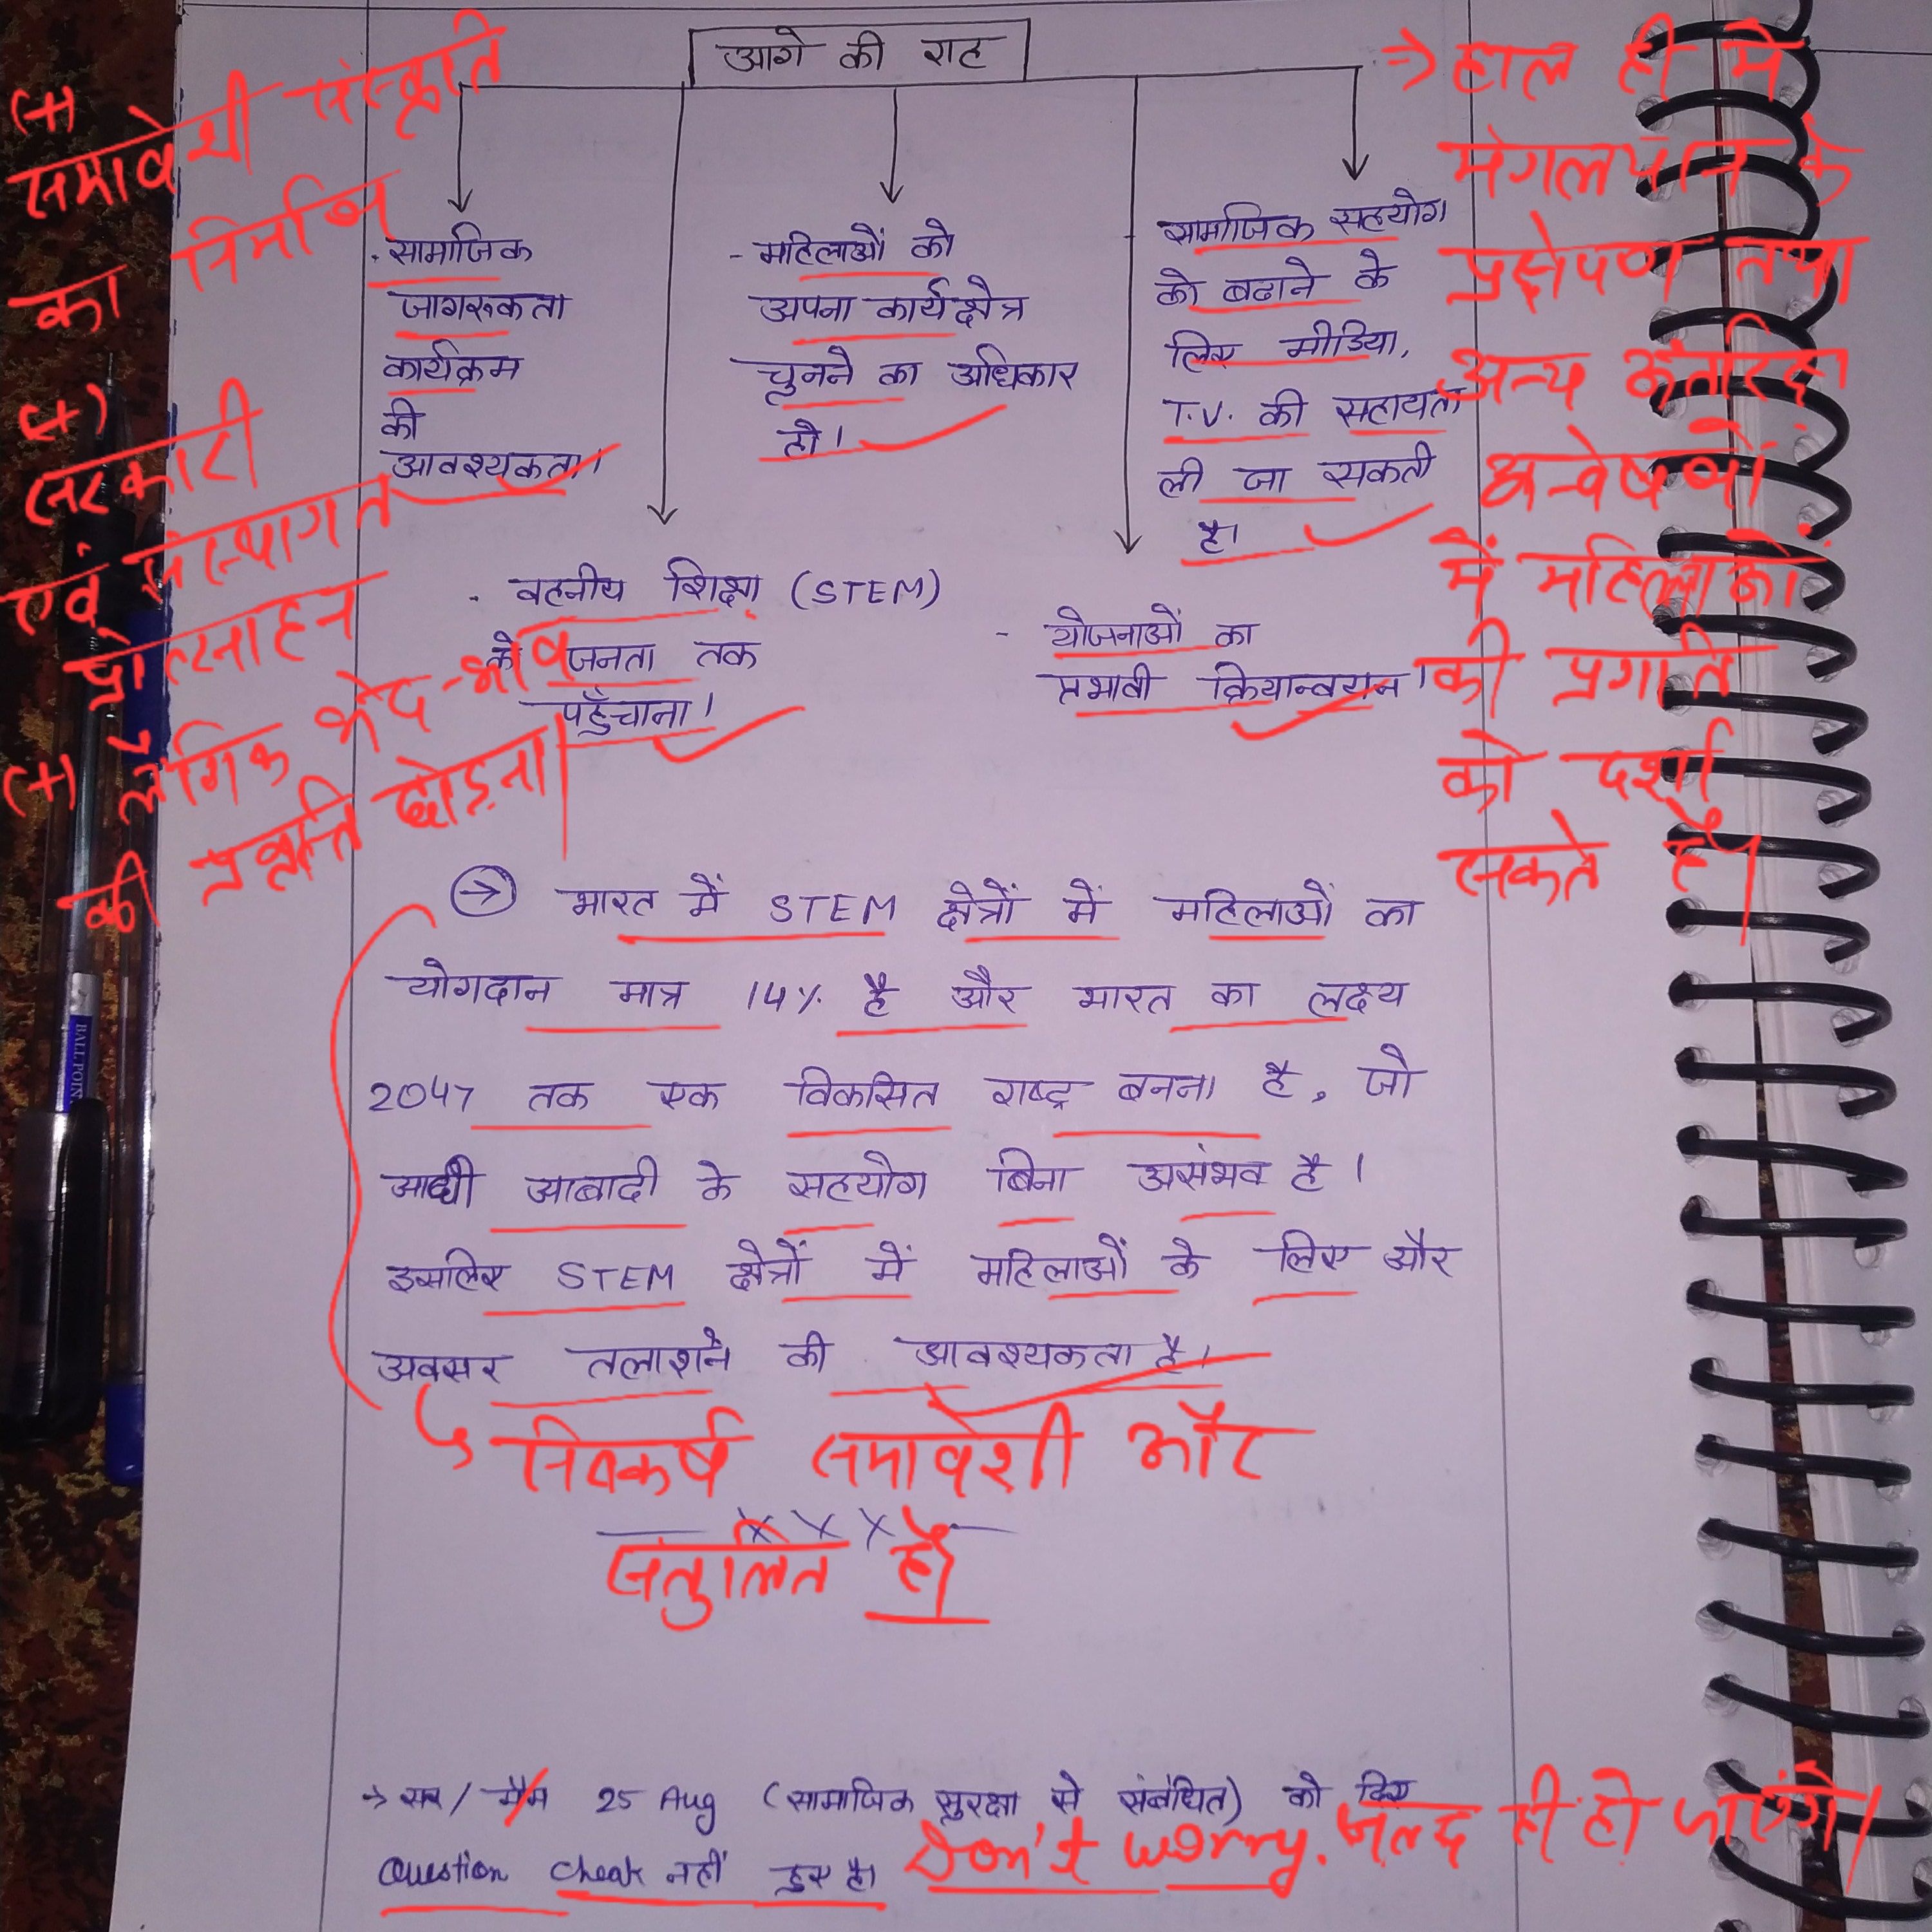 आगे की राह
(+)
समावेशी संस्कृति
का निर्माण
(+)
सरकारी
एवं संस्थागत
प्रोत्साहन
(+) लैंगिक भेद-भाव
की प्रवृत्ति छोड़ना।
· सामाजिक
जागरूकता
कार्यक्रम
की
आवश्यकता।
- महिलाओं को
अपना कार्यक्षेत्र
चुनने का अधिकार
हो।
- सामाजिक सहयोग
को बढाने के
लिए मीडिया,
T.V. की सहायता
ली जा सकती
है।
- वहनीय शिक्षा (STEM)
को जनता तक
पहुँचाना।
- योजनाओं का
प्रभावी क्रियान्वयन।
→ हाल ही में
मंगलयान के
प्रक्षेपण तथा
अन्य अंतरिक्ष
अन्वेषणों
में महिलाओं
की प्रगति
को दर्शा
सकते हैं।
→ भारत में STEM क्षेत्रों में महिलाओं का
योगदान मात्र 14% है और भारत का लक्ष्य
2047 तक एक विकसित राष्ट्र बनना है, जो
आधी आबादी के सहयोग बिना असंभव है।
इसलिए STEM क्षेत्रों में महिलाओं के लिए और
अवसर तलाशने की आवश्यकता है।
निष्कर्ष समावेशी और
x x x
संतुलित है।
→ सर / मैम 25 Aug (सामाजिक सुरक्षा से संबंधित) को दिए
Question cheak नहीं हुए है।
Don't worry. जल्द ही हो जाएंगे।
BALL POIN